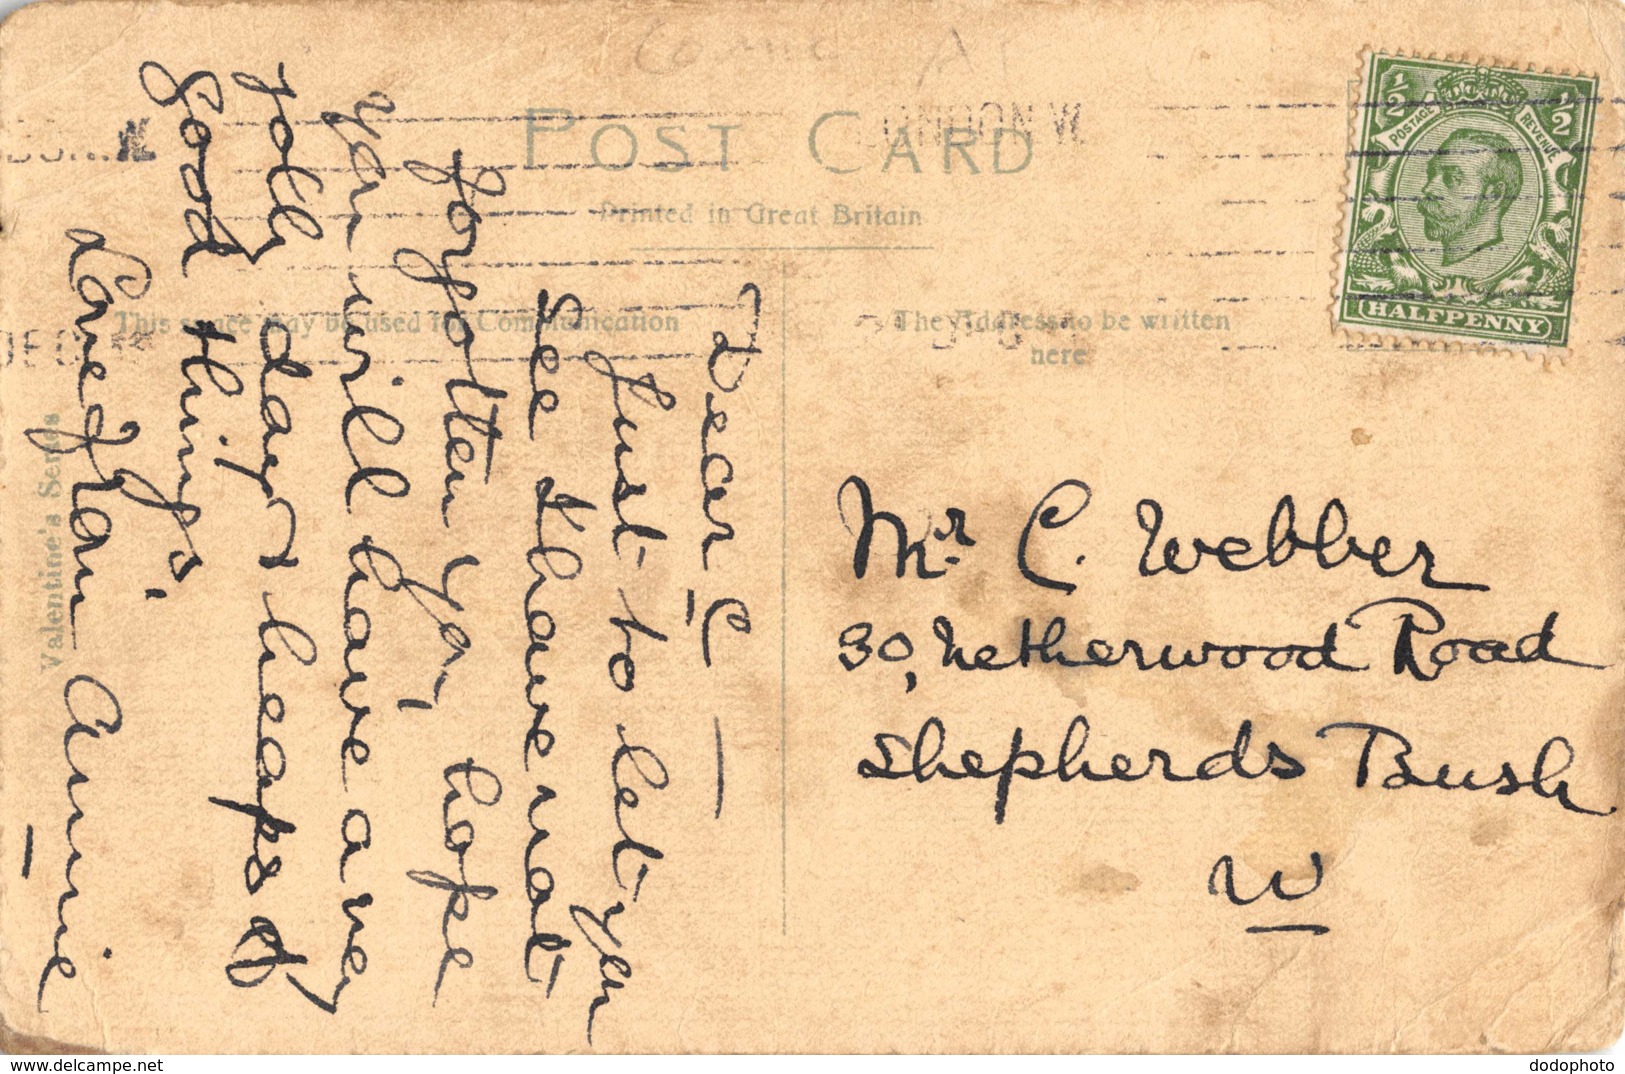 POST CARD
Printed in Great Britain
This space may be used for Communication
The Address to be written
here
Valentine's Series
LONDON W.
½ ½
POSTAGE REVENUE
HALFPENNY
Dear C —
Just to let you
see I have not
forgotten you, hope
you will have a very
jolly day & heaps of
good things,
Love from Annie
Mr. C. Webber
30, Netherwood Road
Shepherds Bush
W
dodophoto